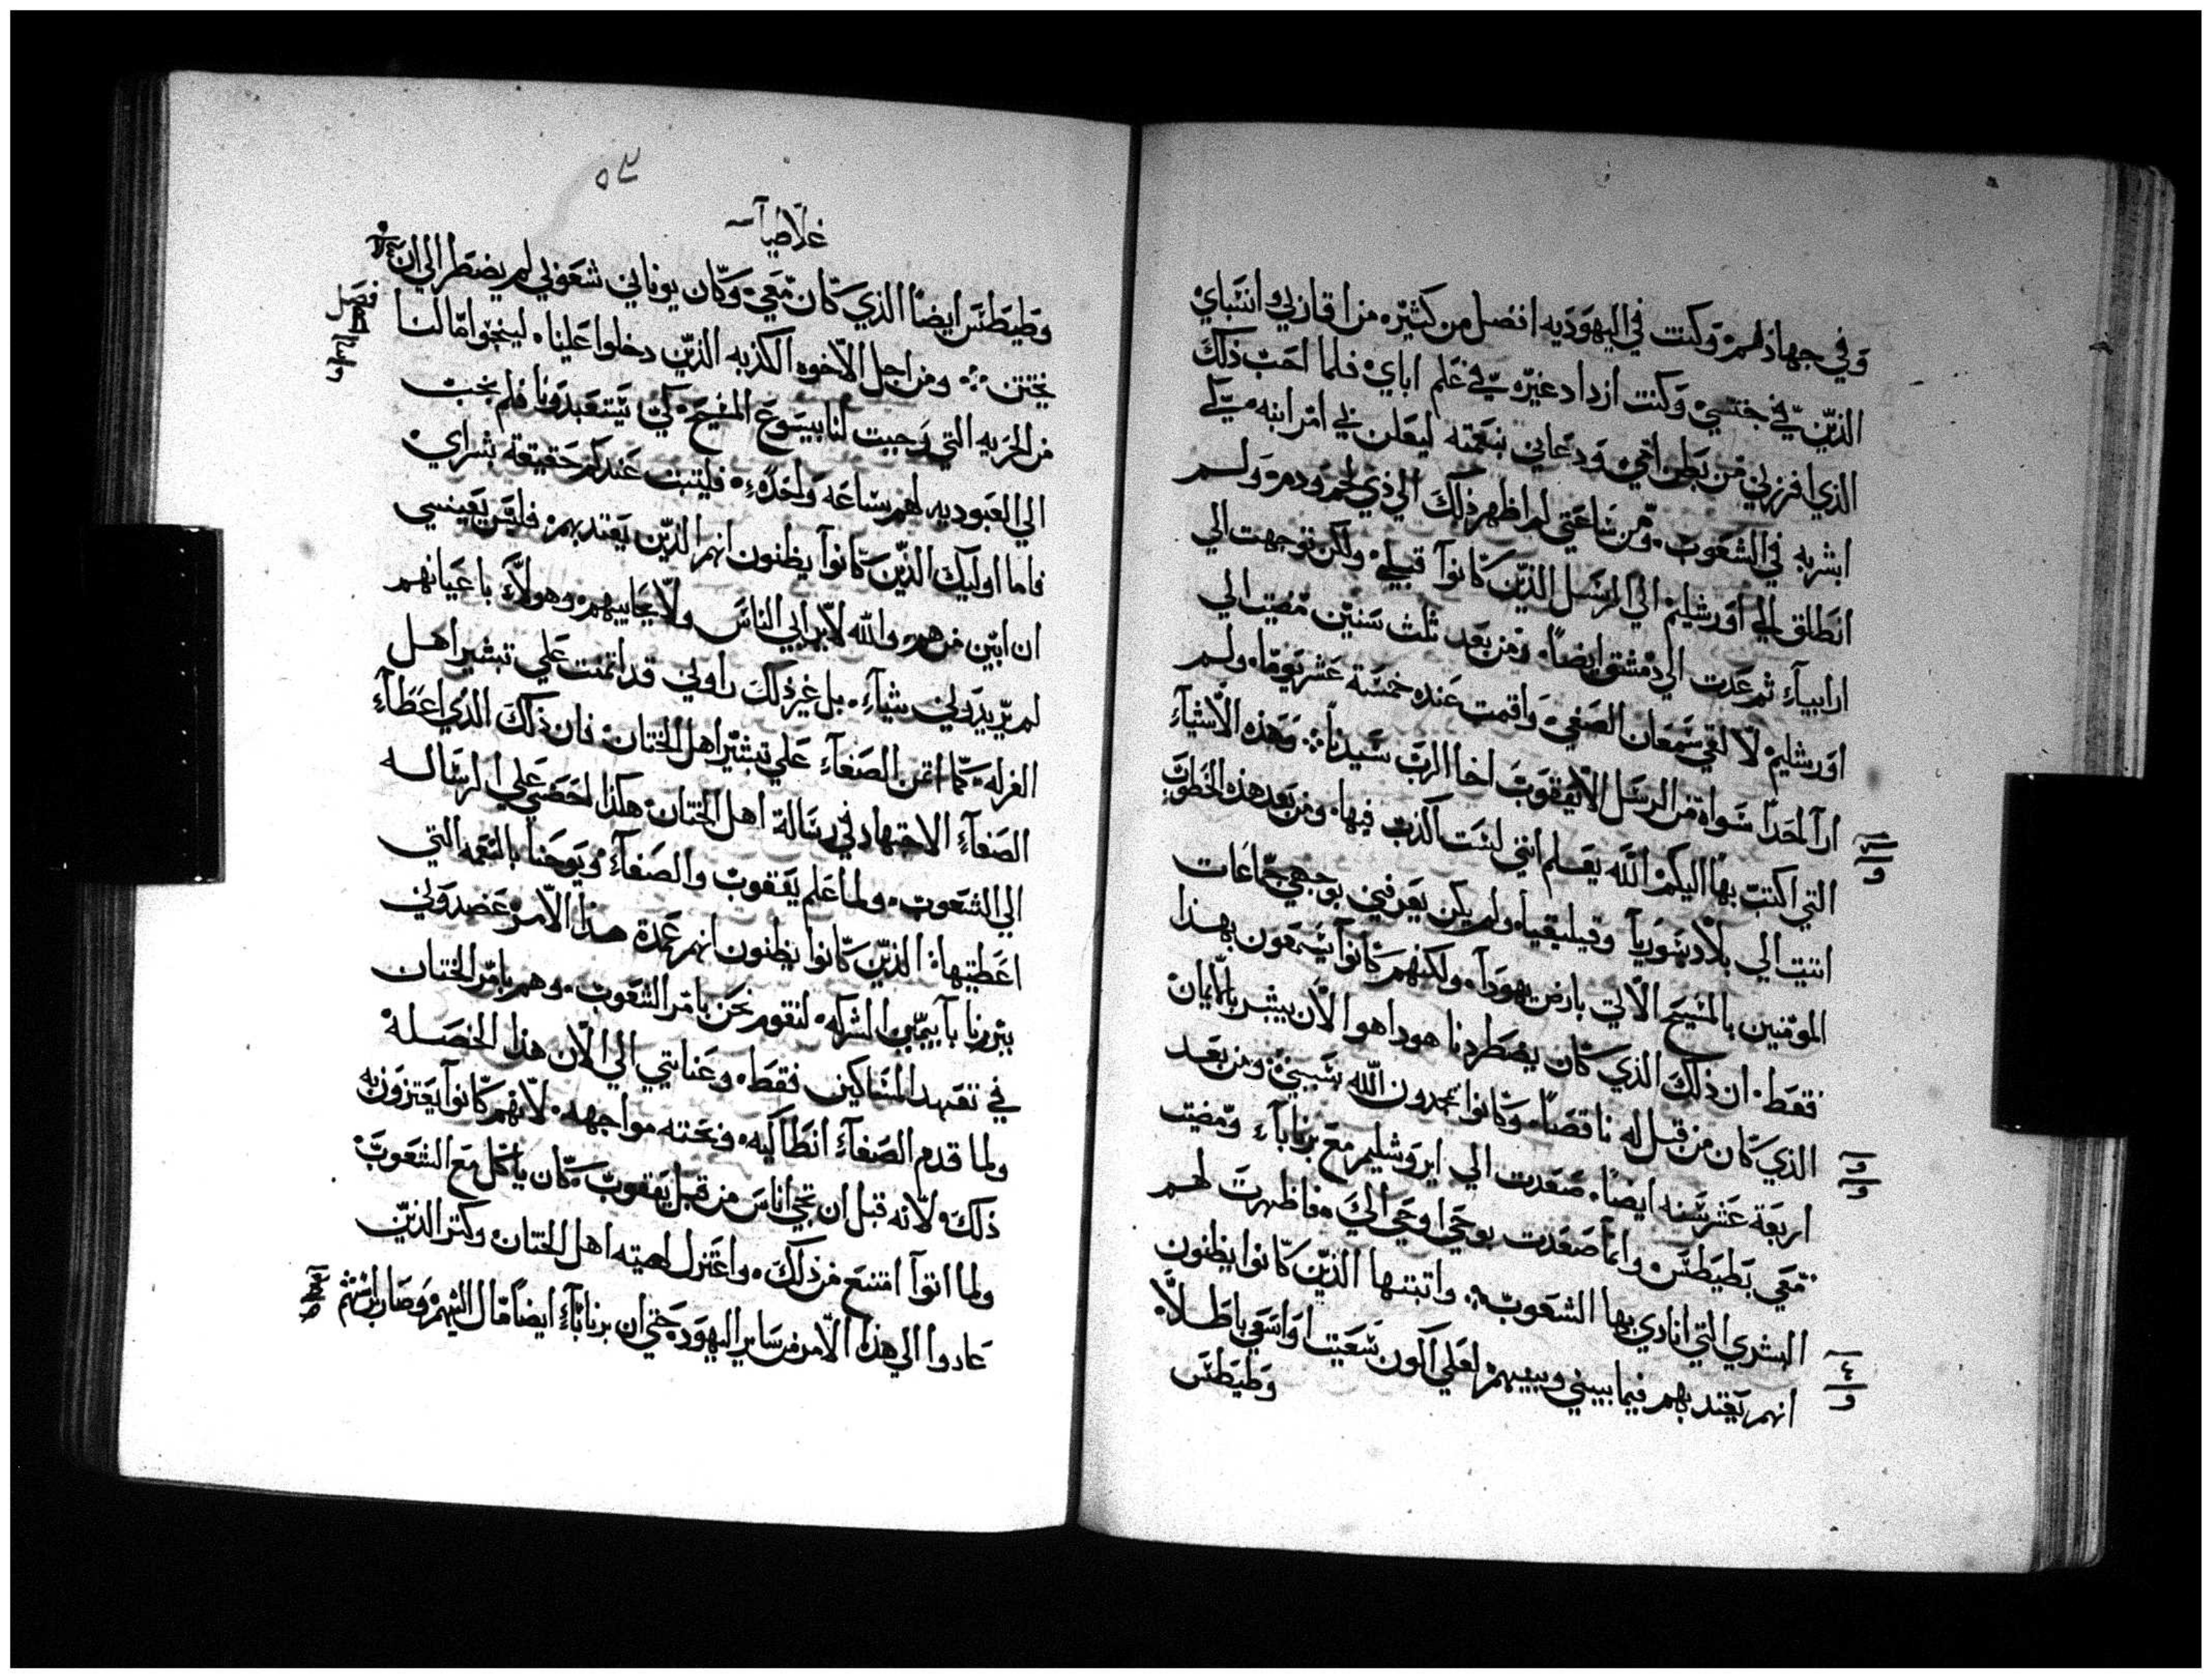 وفي جهادهم وكنت في اليهوديه افضل من كثيره من اقراني وانسباي
الذين في جنسي وكنت ازداد غيره في علم اباي فلما احب ذلك
الذي افرزني من بطن امي ودعاني بنعمته ليعلن في امر ابنه كي
ابشر به في الشعوب ومن ساعتي لم اظهر ذلك الي ذي لحم ودم ولم
انطلق الي اورشليم الي الرسل الذين كانوا قبلي ولكن توجهت الي
ارابياء ثم عدت الي دمشق ايضا ومن بعد ثلث سنين مضيت الي
اورشليم لالقي سمعان الصفي واقمت عنده خمسة عشر يوما ولم
ار احدا سواه من الرسل الا يعقوب اخا الرب سيدنا وهذه الاشياء
التي اكتب بها اليكم الله يعلم انني لست اكذب فيها ومن بعد هذه الخطوب
اتيت الي بلاد سوريا وقيليقيا ولم يكن يعرفني بوجهي جماعات
المومنين بالمسيح الاتي بارض يهودا ولكنهم كانوا يسمعون بهذا
فقط ان ذلك الذي كان يضطردنا هوذا هو الان يبشر بالايمان
الذي كان من قبل له ناقصا وكانوا يمجدون الله بسببي ومن بعد
اربعة عشر سنه ايضا صعدت الي ايروشليم مع برناباء ومضيت
معي بطيطس وانما صعدت بوحي اوحي الي فاظهرت لهم
البشري التي انادي بها الشعوب واتبتها الذين كانوا يظنون
انهم يقتد بهم فيما بيني وبينهم لعلي اكون سعيت او اسعي باطلا
وطيطس
٥٢
غلاطيا
وطيطس ايضا الذي كان معي وكان يوناني شعوبي لم يضطر الي ان
يختتن ومن اجل الاخوه الكذبه الذين دخلوا علينا لينجوا مالنا
من الحريه التي وجبت لنا بيسوع المسيح كي يتعبدونا فلم نجب
الي العبوديه لهم ساعه واحده فليتبت عندكم حقيقة بشراي
فاما اوليك الذين كانوا يظنون انهم الذين يقتد بهم فليس يعينني
ان ابين من هم والله لا يرابي الناس ولا يحابيهم وهولاء باعيانهم
لم يزيدوني شياء بل غير ذلك راوني قد اتمنت علي تبشير اهل
الغرله كما اتمن الصفاء علي تبشير اهل الختان فان ذلك الذي اعطاء
الصفاء الاجتهاد في رسالة اهل الختان هكذا احضي علي الرساله
الي الشعوب ولما علم يعقوب والصفاء ويوحنا بالنعمه التي
اعطيتها الذين كانوا يظنون انهم عمدة هذا الامر عضدوني
وبرنابا بيميني الشركه لنقوم نحن بامر الشعوب وهم بامر الختان
في تعهد المساكين فقط وعنايتي الي الان هذا الخصله
ولما قدم الصفاء انطاكيه وبخته مواجهه لانهم كانوا يعتزون به
ذلك لانه قبل ان تجي اناس من قبل يعقوب كان ياكل مع الشعوب
ولما اتوا امتنع من ذلك واعتزل لهيته اهل الختان وكتر الذين
عادوا الي هذا الامر من ساير اليهود حتي ان برناباء ايضا مال اليهم وصار
فصل